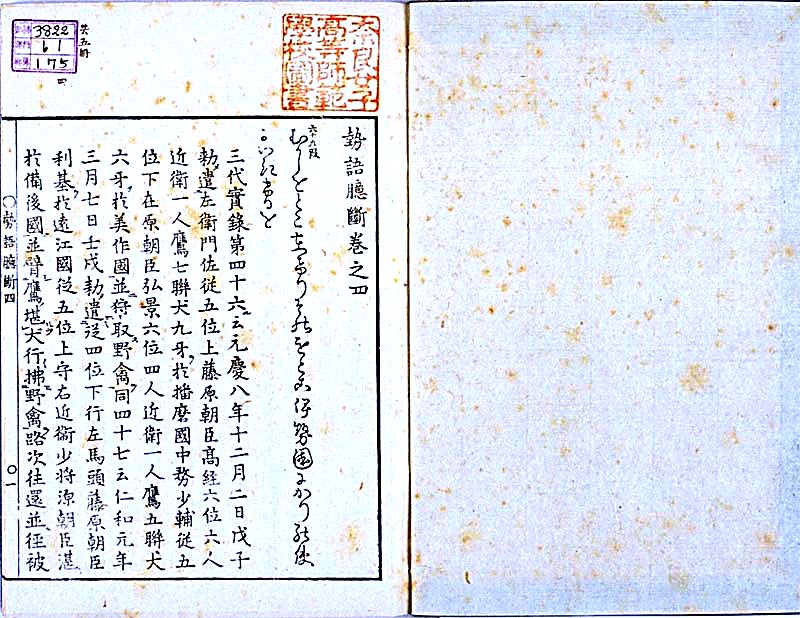 勢語臆斷巻之四
六十九段
むかしをとこ有けりそのをとこ伊勢國にかりの使
にいきけるを
三代實錄第四十六云元慶八年十二月二日戊子
勅遣左衛門佐從五位上藤原朝臣高経六位六人
近衛一人鷹七聯犬九牙於播磨國中務少輔從五
位下在原朝臣弘景六位四人近衛一人鷹五聯犬
六牙於美作國並狩取野禽同四十七云仁和元年
三月七日壬戌勅遣從四位下行左馬頭藤原朝臣
利基於遠江國從五位上守右近衛少将源朝臣湛
於備後國並臂鷹堪犬行拂野禽路次往還並径被
〇勢語臆斷四
〇一
奈良女子
高等師範
學校圖書
共五冊
3822
61
175
四